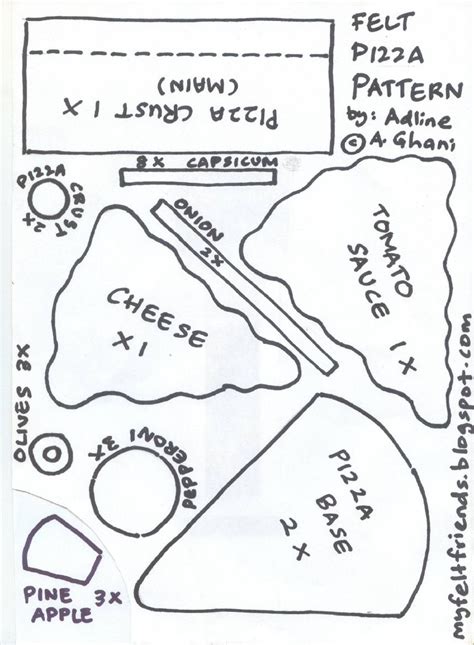 FELT
PIZZA
PATTERN
by: Adline
© A. Ghani
PIZZA CRUST 1 X
(MAIN)
8 X CAPSICUM
PIZZA CRUST 2X
ONION
2X
TOMATO
SAUCE 1 X
CHEESE
X 1
OLIVES 3X
PEPPERONI 3X
PIZZA
BASE
2 X
PINE 3X
APPLE
myfeltfriends.blogspot.com